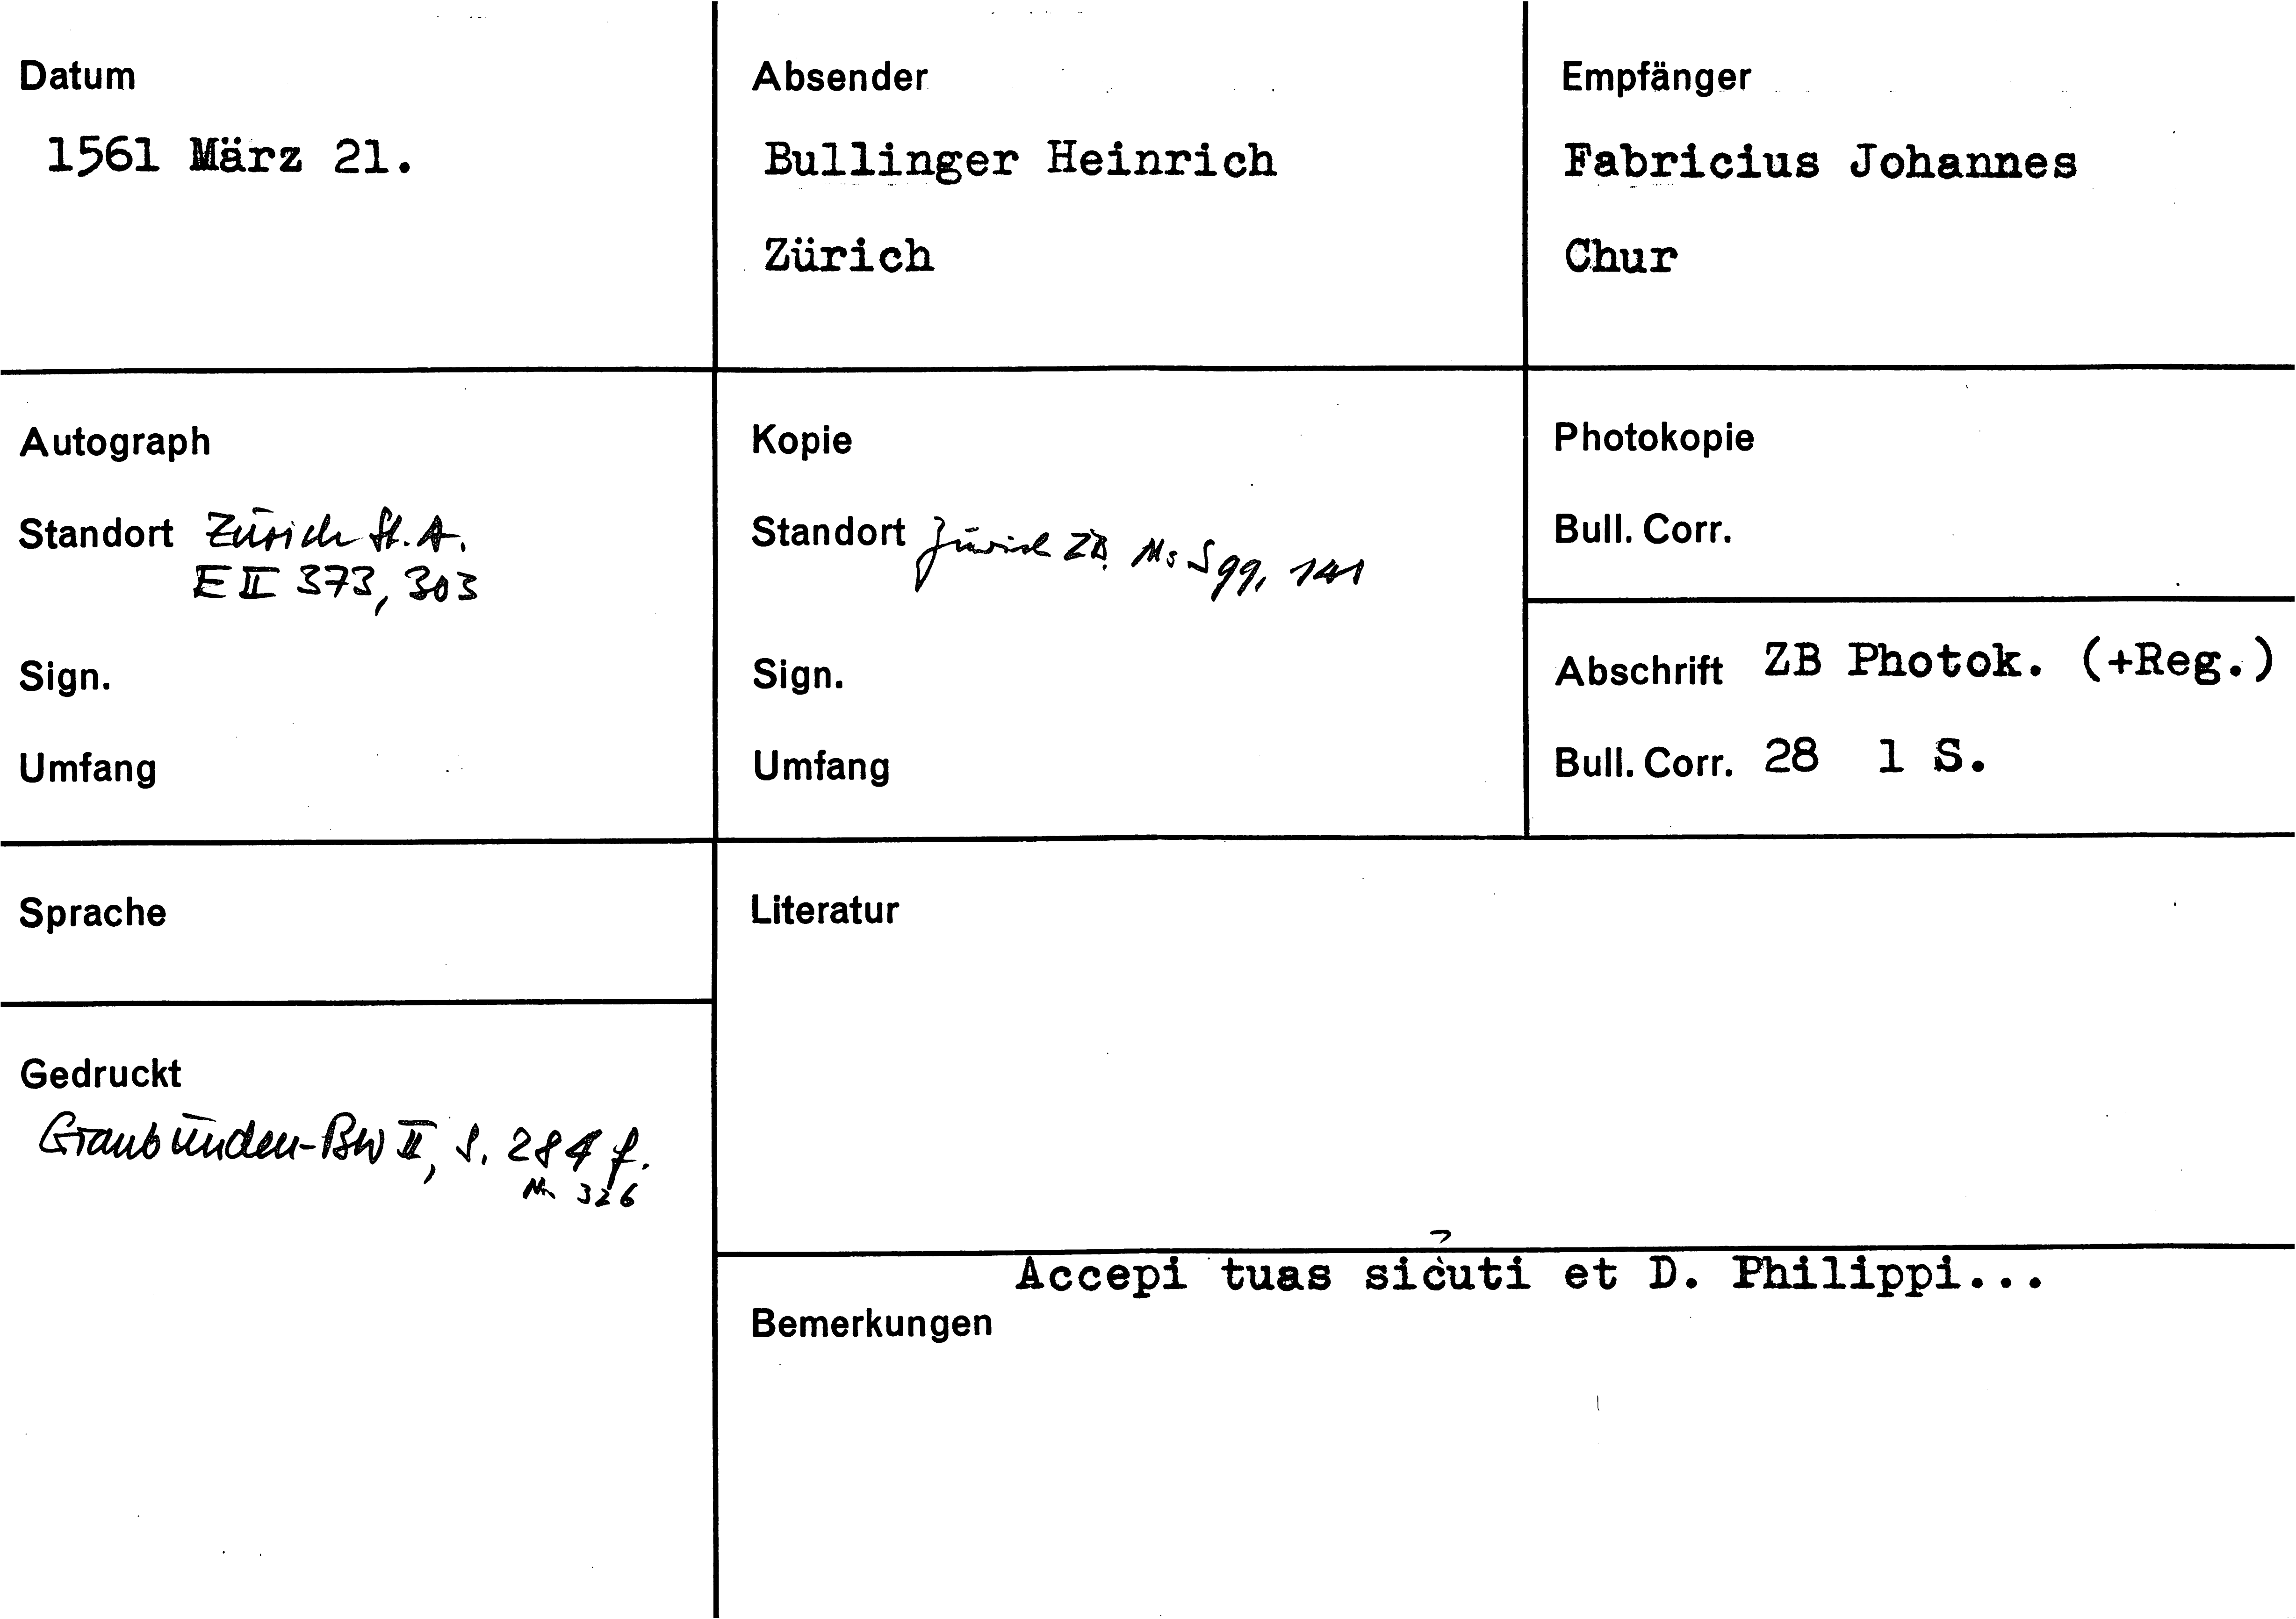 Datum
1561 März 21.
Absender
Bullinger Heinrich
Zürich
Empfänger
Fabricius Johannes
Chur
Autograph
Standort Zürich St. A.
E II 373, 303
Sign.
Umfang
Kopie
Standort Zürich ZB. Ms S 99, 141
Sign.
Umfang
Photokopie
Bull. Corr.
Abschrift ZB Photok. (+Reg.)
Bull. Corr. 28 1 S.
Sprache
Gedruckt
Graubünden-BW II, S. 284 f.
Nr. 326
Literatur
Accepi tuas sicuti et D. Philippi...
Bemerkungen